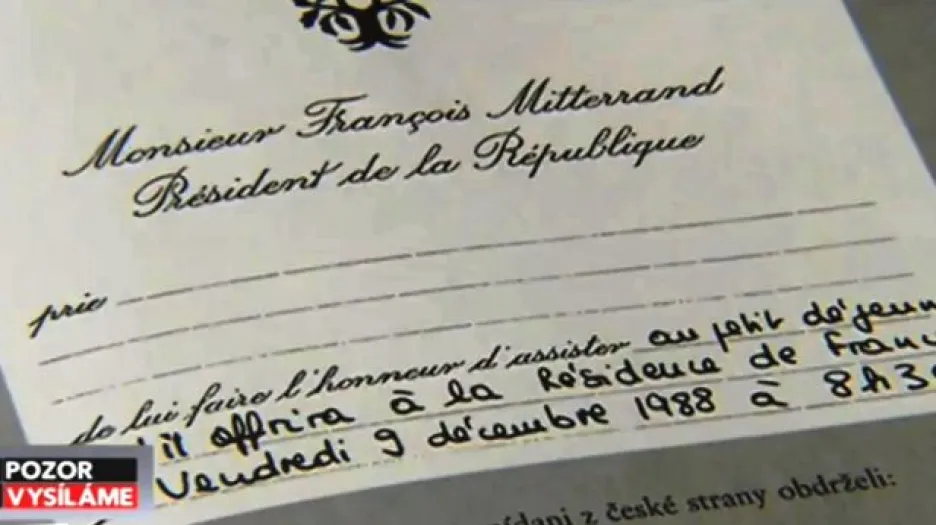 Monsieur François Mitterrand
Président de la République
prie
de lui faire l'honneur d'assister au petit déjeun
'il offrira à la Résidence de Franc
Vendredi 9 décembre 1988 à 8h3
POZOR
VYSÍLÁME
z české strany obdrželi: